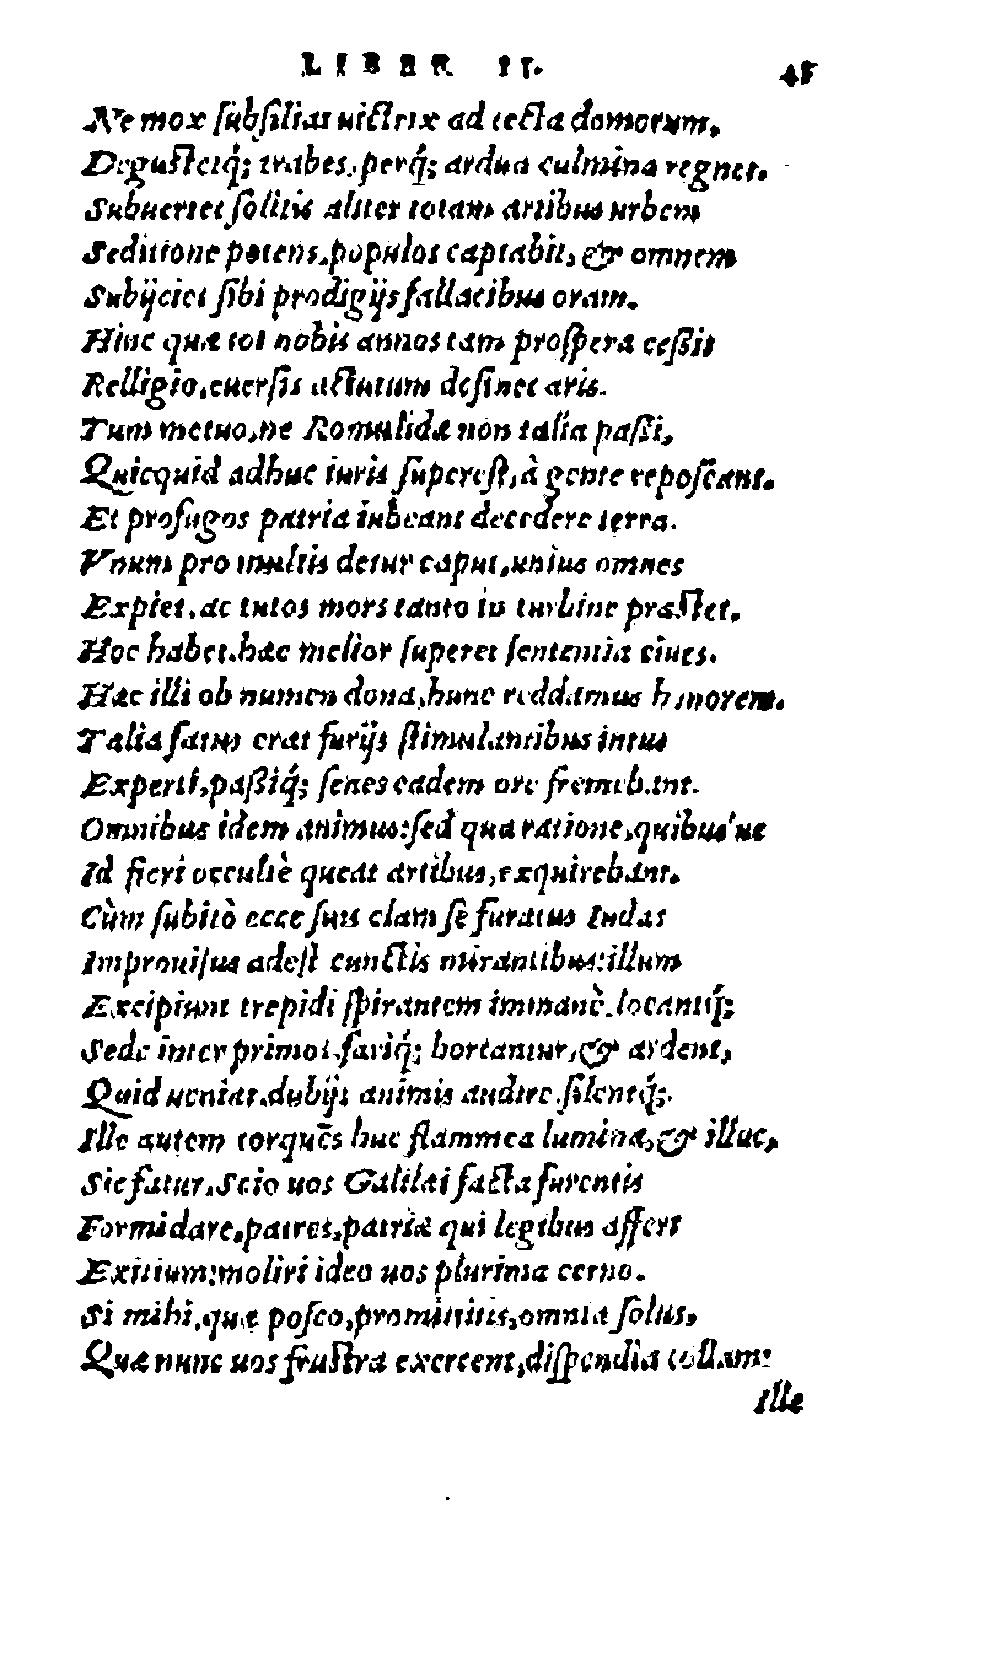 LIBER II. 45
Ne mox ſubſiliat uictrix ad tecta domorum,
Deguſtetq́; trabes, perq́; ardua culmina regnet.
Subuertet ſolitis aliter totam artibus urbem
Seditione potens, populos captabit, & omnem
Subijciet ſibi prodigijs fallacibus oram.
Hinc quæ tot nobis annos tam proſpera ceßit
Relligio, euerſis aſtutum deſinet aris.
Tum metuo, ne Romulidæ non talia paßi,
Quicquid adhuc iuris ſupereſt, à gente repoſcant.
Et profugos patria iubeant decedere terra.
Vnum pro multis detur caput, unius omnes
Expiet, ac tutos mors tanto in turbine præſtet.
Hoc habet. hæc melior ſuperet ſententia ciues.
Hæc illi ob numen dona, hunc reddamus honorem.
Talia fatus erat furijs ſtimulantibus intus
Experti, paßiq́; ſenes eadem ore fremebant.
Omnibus idem animus: ſed qua ratione, quibus'ue
Id fieri occultè queat artibus, exquirebant.
Cùm ſubitò ecce ſuis clam ſe furatus Iudas
Improuiſus adeſt cunctis mirantibus: illum
Excipiunt trepidi ſpirantem immanè. locantq́;
Sede inter primos. fariq́; hortantur, & ardent,
Quid ueniat, dubijs animis audire. ſilentq́;.
Ille autem torquēs huc flammea lumina, & illuc,
Sic fatur. Scio uos Galilæi facta furentis
Formidare, patres, patriæ qui legibus affert
Exitium: moliri ideo uos plurima cerno.
Si mihi, quæ poſco, promittitis, omnia ſolus,
Quæ nunc uos fruſtra exercent, diſpendia tollam:
Ille